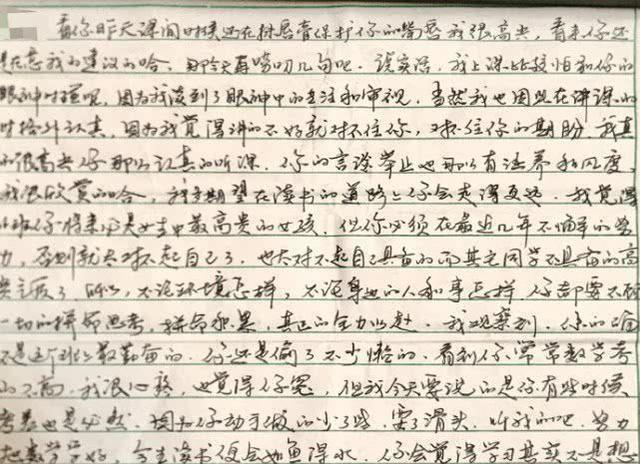 看你昨天课间时候还在抹唇膏保护你的嘴唇我很高兴，看来你还
是在意我的建议的哈，那今天再唠叨几句吧。说实话，我上课比较怕和你的
眼神对碰呢，因为我读到了眼神中的专注和审视。当然我也因此在讲课的
时格外认真，因为我觉得讲的不好就对不住你，对不住你的期盼，我真
的很高兴你那么认真的听课。你的言谈举止也那么有涵养和风度，
我很欣赏的哈，我更期望在读书的道路上你会走得更远。我觉得
你将来必是女生中最高贵的女孩，但你必须在最近几年不懈的努
力，否则就太对不起自己了，也太对不起自己具备的而其它同学不具备的高
贵气质了，所以，不论环境怎样，不论身边的人和事怎样，你都要不顾
一切的拼命思考，拼命积累，真正的全力以赴。我观察到，你的
不是这个班上最勤奋的，你还是偷了不少懒的，看到你常常数学考
的不高，我很心疼，也觉得你冤，但我今天要说的是你有些时候
考差也是必然，因为你动手做的少了些，耍了滑头，听我的吧，努力
把数学学好，今生读书便会如鱼得水，你会觉得学习其实不是想